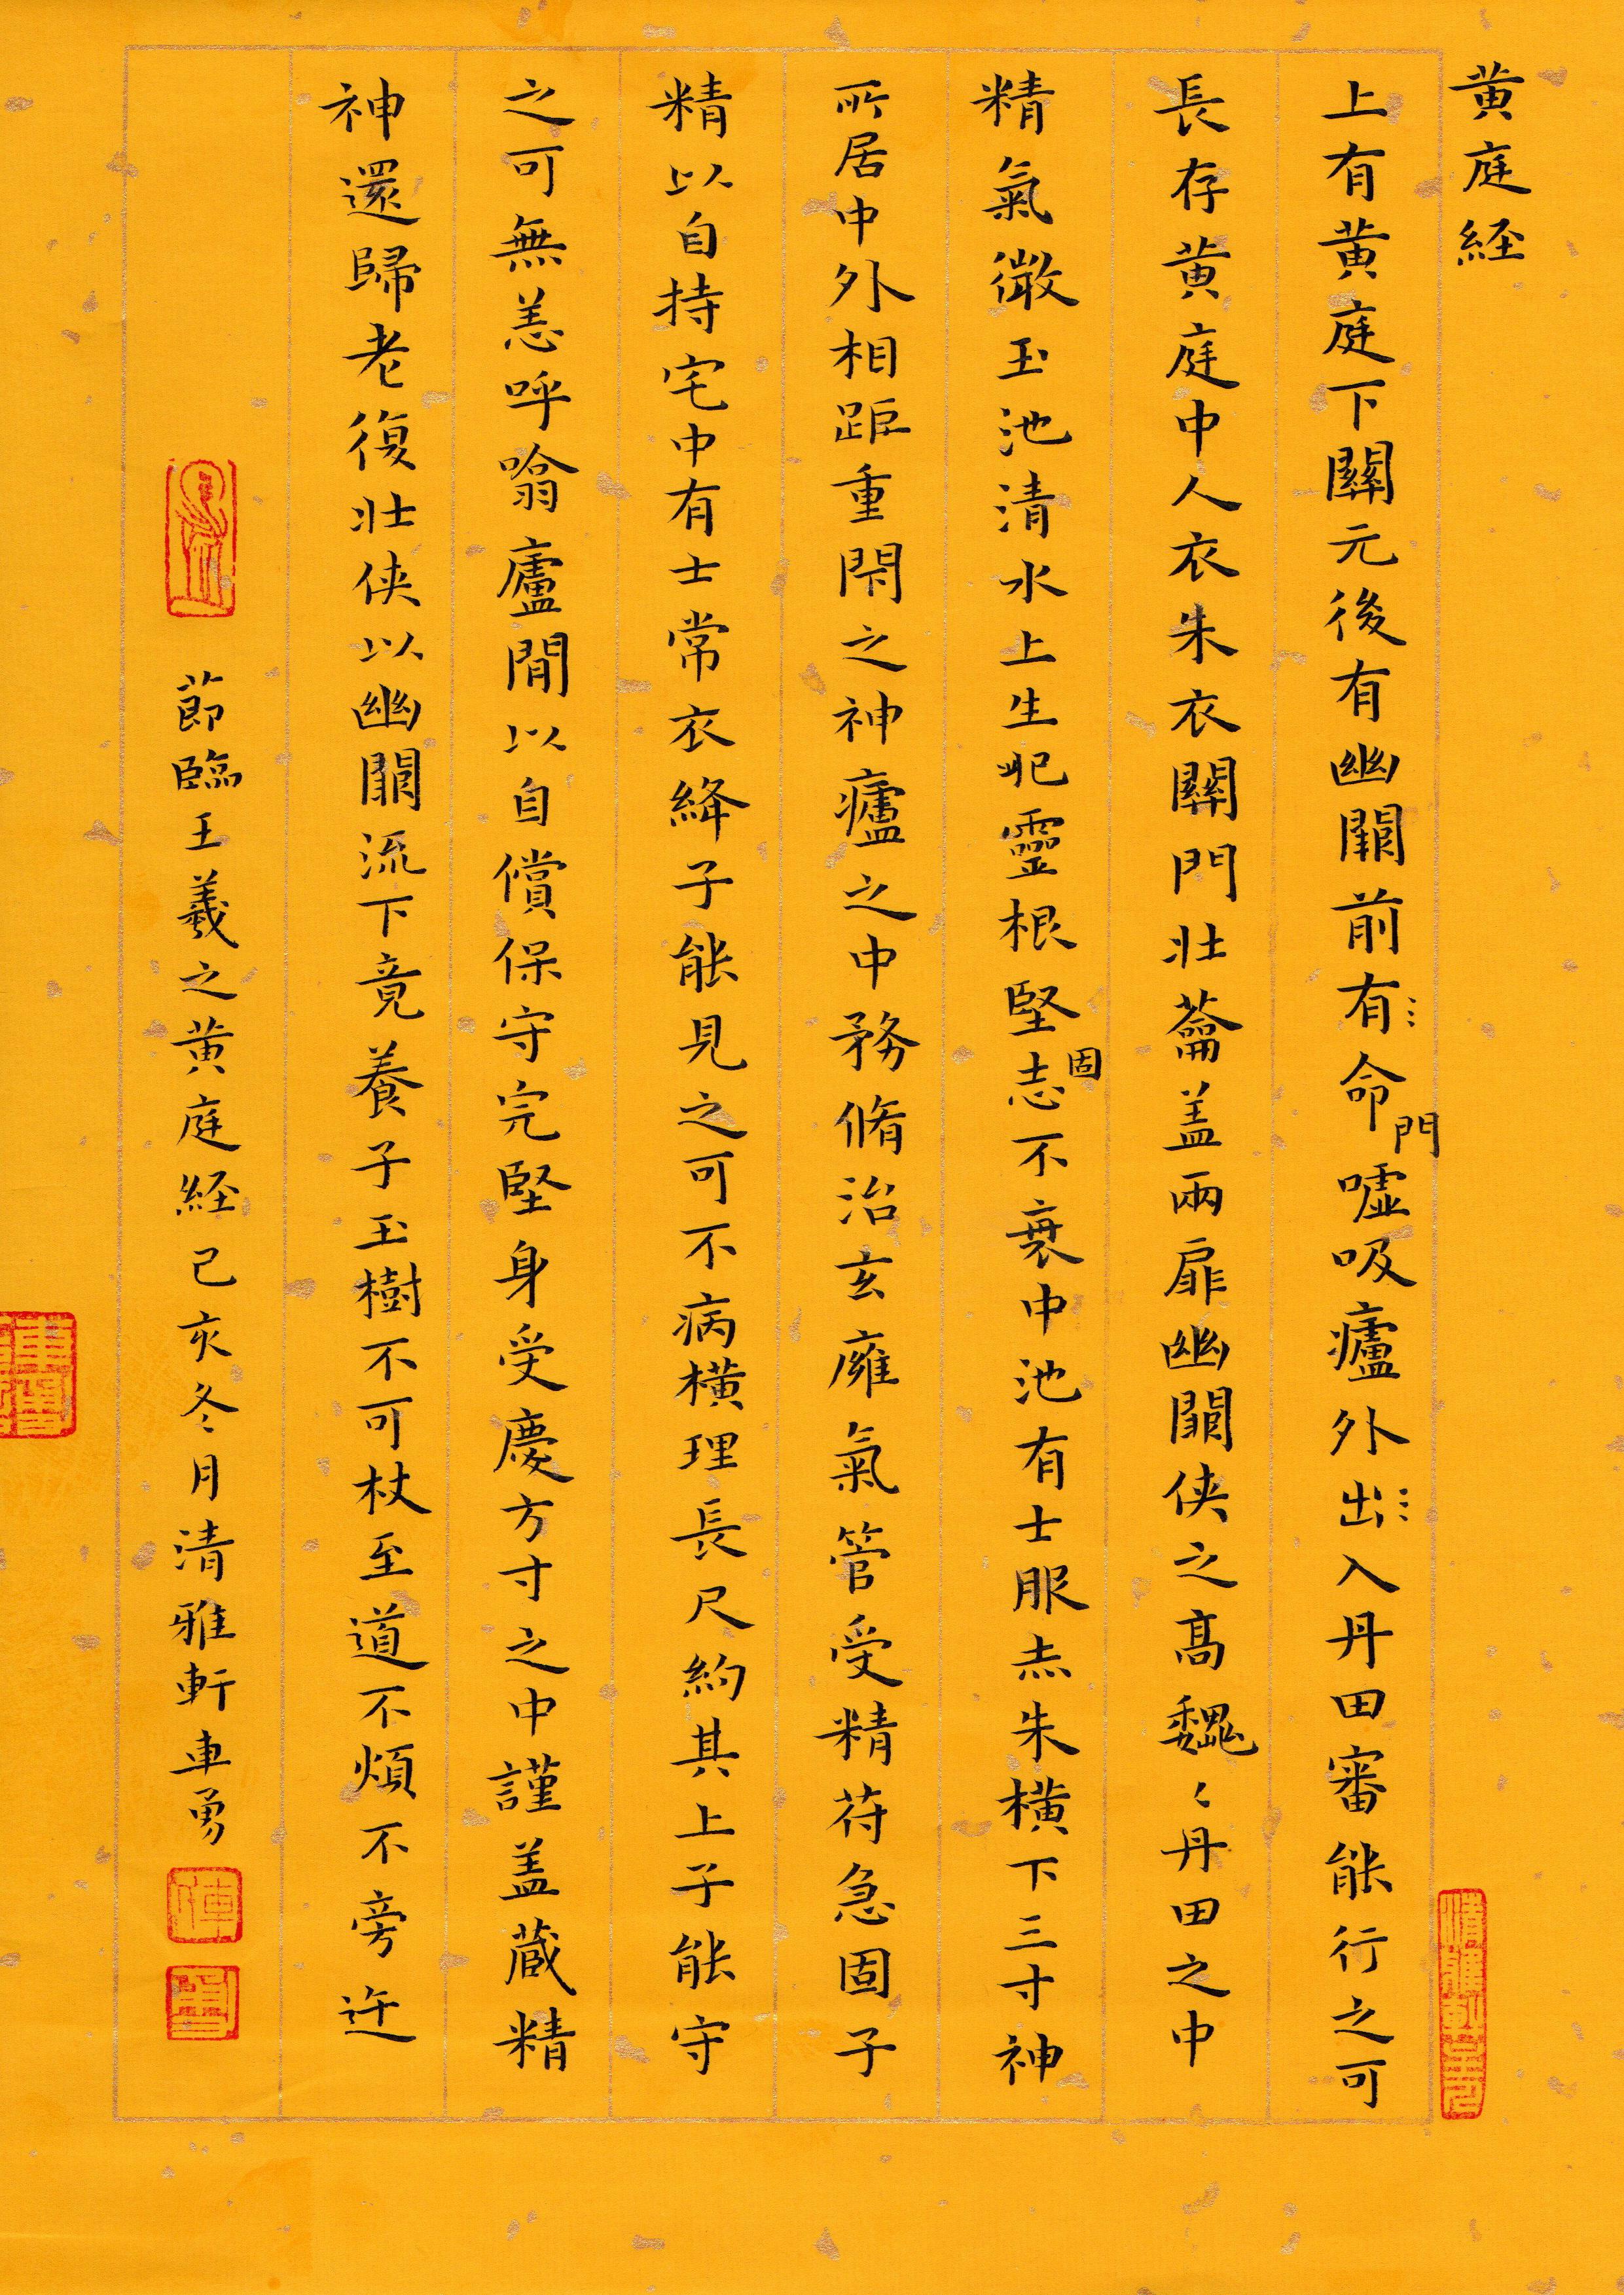 黄庭経
上有黄庭下關元後有幽關前有命門嘘吸廬外出入丹田審能行之可
長存黄庭中人衣朱衣關門壮蘥盖兩扉幽關侠之髙魏〻丹田之中
精氣微玉池清水上生肥靈根堅固志不衰中池有士服赤朱横下三寸神
所居中外相距重閇之神廬之中務脩治玄廱氣管受精苻急固子
精以自持宅中有士常衣絳子能見之可不病横理長尺約其上子能守
之可無恙呼噏廬間以自償保守完堅身受慶方寸之中謹盖藏精
神還歸老復壮侠以幽關流下竟養子玉樹不可杖至道不煩不旁迕
節臨王羲之黄庭経己亥冬月清雅軒車勇